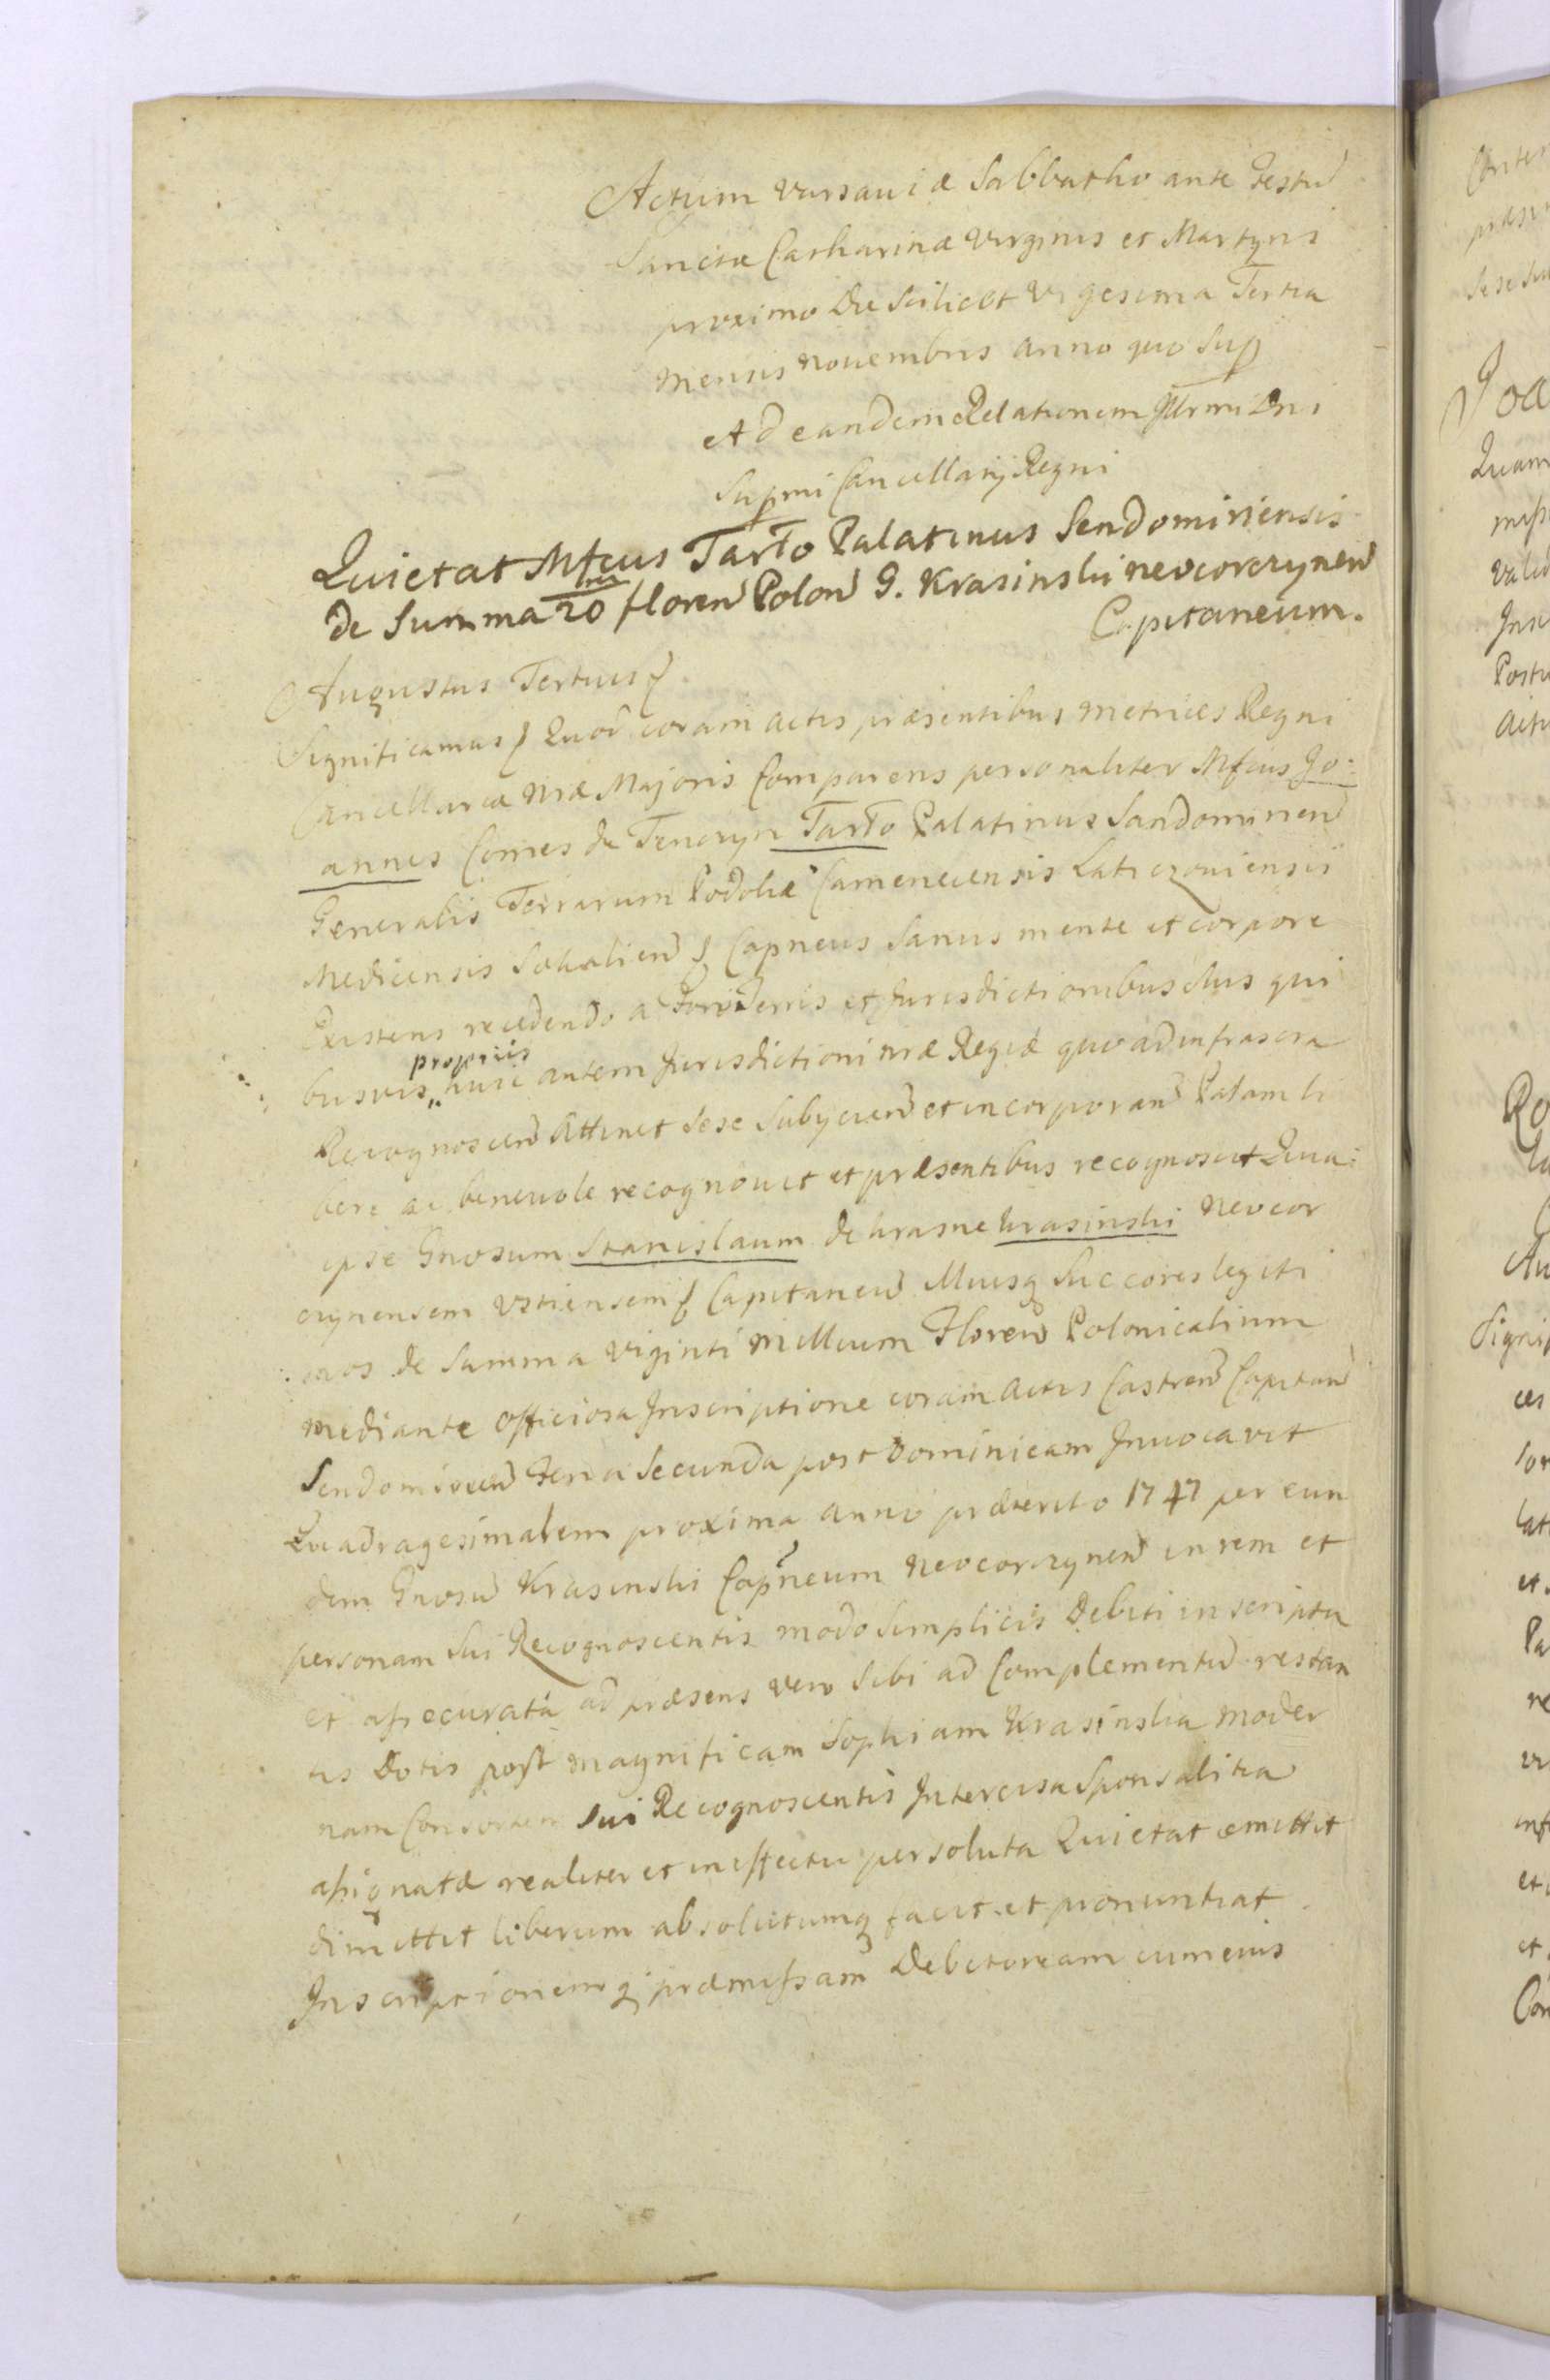 Actum Varsaviæ Sabbatho ante Festū
Sanctæ Catharinæ Virginis et Martyris
proximo Die Scilicet Vigesima Tertia
Mensis Novembris anno quo Sup
Ad eandem Relationem Illrmi Dni
Supmi Cancellarij Regni
Quietat Mfcus Tarło Palatinus Sendomiriensis
de Summa 20 floren Polon G. Krasinski neocorczynen
Capitaneum.
Augustus Tertius
Significamus Quod coram actis præsentibus Metrices Regni
Cancellariæ Nræ Majoris Comparens personaliter Mfcus Jo:
annes Comes de Tenczyn Tarło Palatinus Sandomirien
Generalis Terrarum Podoliæ Camenecensis Latyczoviensis
Medicensis Sokalien Capneus Sanus mente et corpore
Existens recedendo a Foro Terris et Jurisdictionibus Suis qui
busvis propriis huic autem Jurisdictioni nræ Regiæ quo ad infrascra
Recognoscen Attinet Sese Subycien et incorporan Palam li
bere ac benevole recognovit et præsentibus recognoscit Quia:
ipse Gnosum Stanislaum de Krasne Krasinski Neocor
czynensem Ustiensem Capitaneū Illiusq Succores legiti
mos de Summa Viginti Millium Floren Polonicalium
mediante officiosa Inscriptione coram actis Castren Capitan
Sendomirien Feria Secunda post Dominicam Invocavit
Quadragesimalem proxima anno præterito 1747 per eun
dem Gnosū Krasinski Capneum Neocorczynen in rem et
personam Sui Recognoscentis modo Simplicis Debiti inscripta
et assecurata ad præsens vero Sibi ad Complementū restan
tis Dotis post Magnificam Sophiam Krasinska moder
nam Consortem Sui Recognoscentis Intercisa Sponsalitia
assignatæ realiter et in effectu persoluta Quietat emittit
dimittit liberum absolutumq facit et pronuntiat
Inscriptionemq præmissam Debitoream cum eius